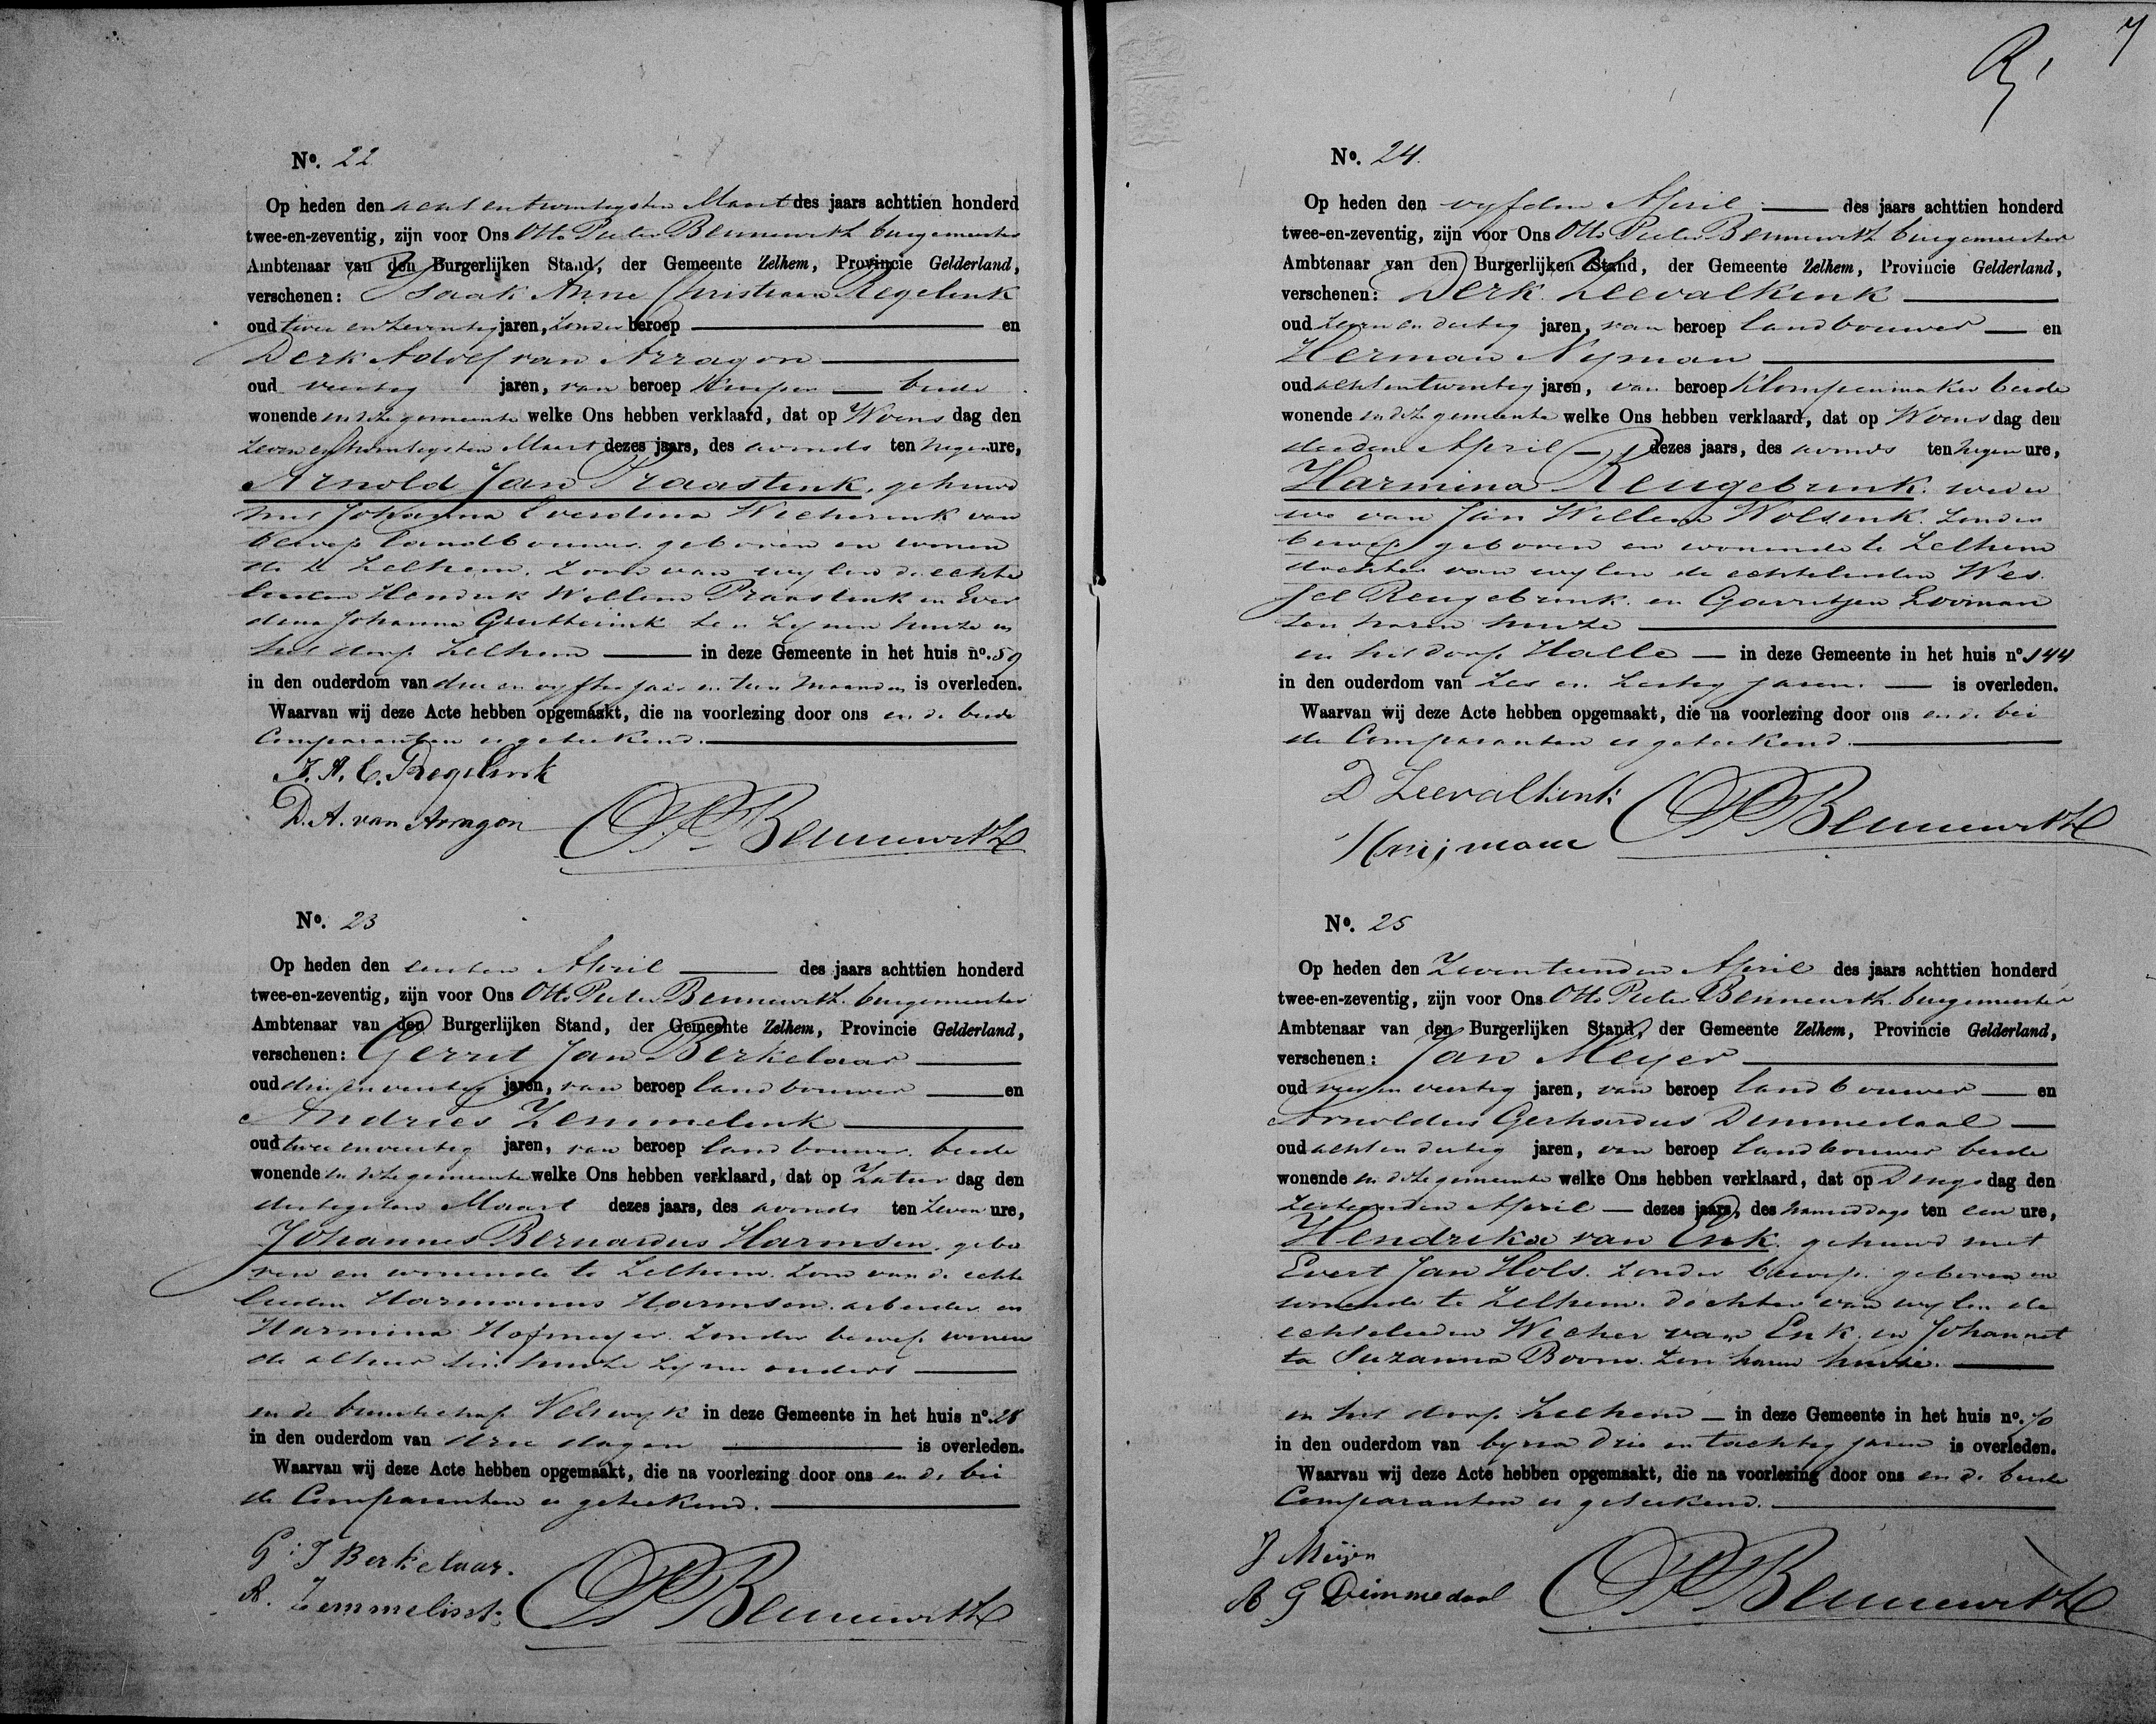 7
No. 22
Op heden den acht en twintigsten Maart des jaars achttien honderd
twee-en-zeventig, zijn voor Ons Otto Pieter Bennewitz burgemeester
Ambtenaar van den Burgerlijken Stand, der Gemeente Zelhem, Provincie Gelderland,
verschenen: Isaak Anne Christiaan Regelink
oud twee en zeventig jaren, zonder beroep en
Derk Adolf van Arragon
oud veertig jaren, van beroep beide
wonende in deze gemeente welke Ons hebben verklaard, dat op Woens dag den
zeven en twintigsten Maart dezes jaars, des avonds ten negen ure,
Arnold Jan Praastink, gehuwd
met Johanna Everdina Wicherink van
beroep landbouwer geboren en wonen
de te Zelhem. Zoon van wylen de echte
lieden Hendrik Willem Praastink en Ever
dina Johanna Grutterink ten zynen huize in
het dorp Zelhem in deze Gemeente in het huis no. 59
in den ouderdom van drie en vyftig jaar en tien maanden is overleden.
Waarvan wij deze Acte hebben opgemaakt, die na voorlezing door ons en de beide
Comparanten is geteekend.
I. A. C. Regelink
D. A. van Arragon OPBennewitz
No. 23
Op heden den eersten April des jaars achttien honderd
twee-en-zeventig, zijn voor Ons Otto Pieter Bennewitz. burgemeester
Ambtenaar van den Burgerlijken Stand, der Gemeente Zelhem, Provincie Gelderland,
verschenen: Gerrit Jan Berkelaar
oud drie en veertig jaren, van beroep landbouwer en
Andries Zemmelink
oud twee en veertig jaren, van beroep landbouwer. beide
wonende in deze gemeente welke Ons hebben verklaard, dat op Zatur dag den
dertigsten Maart dezes jaars, des avonds ten zeven ure,
Johannes Bernardus Harmsen. gebo
ren en wonende te Zelhem. Zoon van de echte
lieden Harmanus Harmsen. arbeider en
Harmina Hofmeyer. Zonder beroep wonen
de alhier ten huize zyner ouders
in de buurtschap Velswyk in deze Gemeente in het huis no. 28
in den ouderdom van drie dagen is overleden.
Waarvan wij deze Acte hebben opgemaakt, die na voorlezing door ons en de bei
de Comparanten is geteekend.
G: J Berkelaar.
A. Zemmelink OPBennewitz
No. 24.
Op heden den vyfden April des jaars achttien honderd
twee-en-zeventig, zijn voor Ons Otto Pieter Bennewitz burgemeester
Ambtenaar van den Burgerlijken Stand, der Gemeente Zelhem, Provincie Gelderland,
verschenen: Derk Zeevalkink
oud zeven en dertig jaren, van beroep landbouwer en
Herman Nyman
oud acht en twintig jaren, van beroep Klompenmaker beide
wonende in deze gemeente welke Ons hebben verklaard, dat op Woens dag den
derden April dezes jaars, des avonds ten negen ure,
Harmina Reugebrink. wedu
we van Jan Willem Wolsink. Zonder
beroep geboren en wonende te Zelhem
dochter van wylen de echtelieden Wes
sel Reugebrink. en Garritjen Looman
ten haren huize
in het dorp Halle in deze Gemeente in het huis no. 144
in den ouderdom van zes en zestig jaren. is overleden.
Waarvan wij deze Acte hebben opgemaakt, die na voorlezing door ons en de bei
de Comparanten is geteekend.
D Zeevalkink
H nijman OPBennewitz
No. 25
Op heden den Zeventienden April des jaars achttien honderd
twee-en-zeventig, zijn voor Ons Otto Pieter Bennewitz. burgemeester
Ambtenaar van den Burgerlijken Stand, der Gemeente Zelhem, Provincie Gelderland,
verschenen: Jan Meyer
oud vier en veertig jaren, van beroep landbouwer en
Arnoldus Gerhardus Dimmedaal
oud acht en dertig jaren, van beroep landbouwer beide
wonende in deze gemeente welke Ons hebben verklaard, dat op Dings dag den
zestienden April dezes jaars, des namiddags ten een ure,
Hendrika van Enk. gehuwd met
Evert Jan Hols. zonder beroep. geboren en
wonende te Zelhem. Dochter van wylen de
echtelieden Wicher van Enk. en Johannet
ta Suzanna Boom. ten haren huize.
in het dorp Zelhem in deze Gemeente in het huis no. 70
in den ouderdom van byna drie en tachtig jaren is overleden.
Waarvan wij deze Acte hebben opgemaakt, die na voorlezing door ons en de beide
Comparanten is geteekend.
J Meijer
A G Dimmedaal OPBennewitz